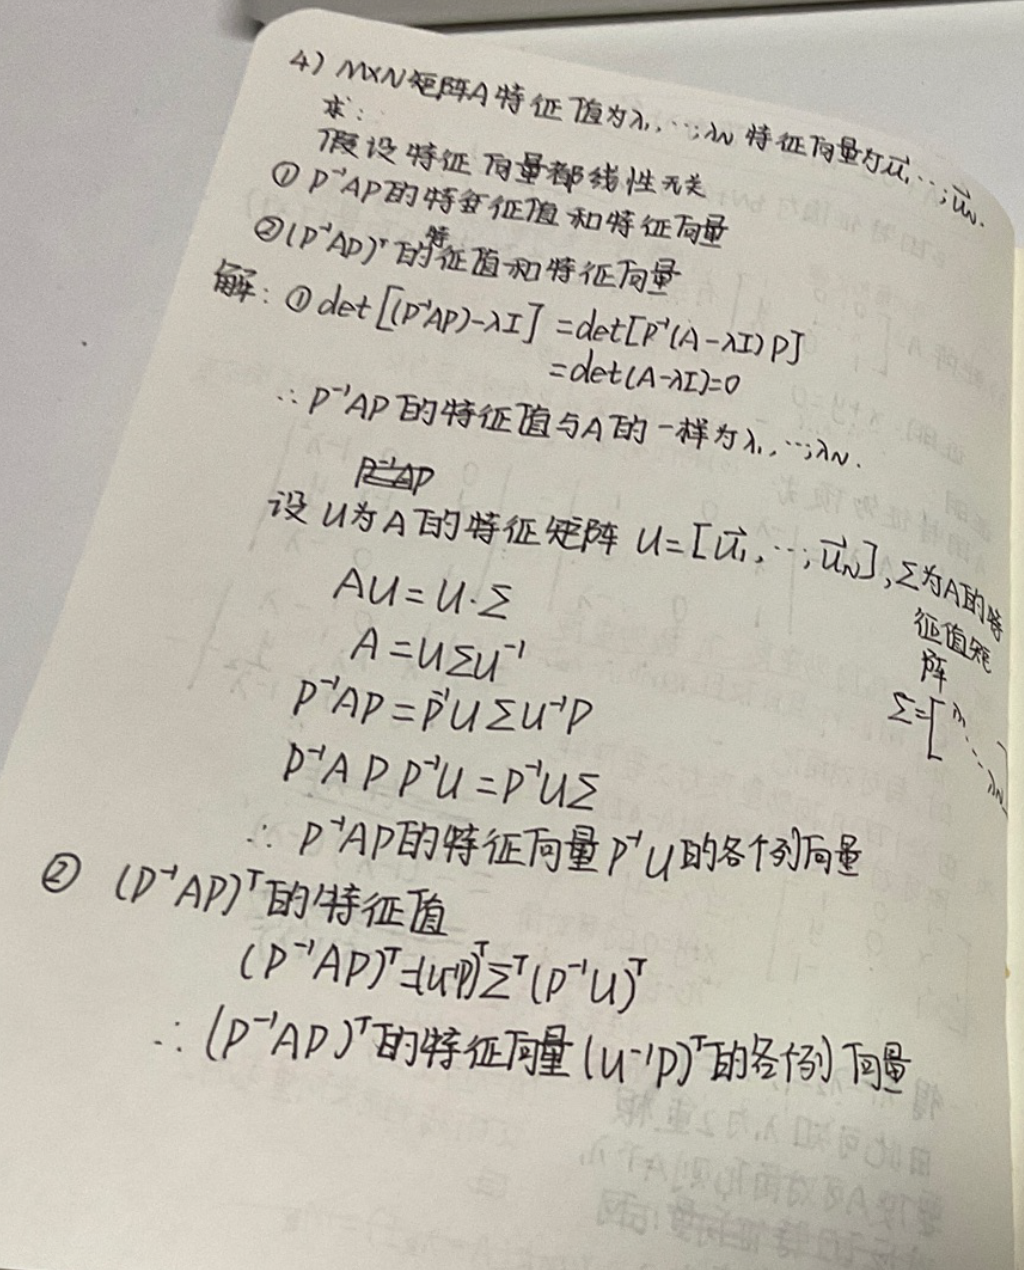 4) M×N矩阵A特征值为λ₁,⋯,λN 特征向量为u⃗₁,⋯,u⃗N.
求:
假设特征向量都线性无关
① P⁻¹AP的特征值和特征向量
②(P⁻¹AP)ᵀ的特征值和特征向量
解: ① det[(P⁻¹AP)-λI] =det[P⁻¹(A-λI)P]
=det(A-λI)=0
∴ P⁻¹AP的特征值与A的一样为λ₁,⋯,λN.
P⁻¹AP
设U为A的特征矩阵 U=[u⃗₁,⋯,u⃗N],Σ为A的特
征值矩
阵
Σ=[λ₁⋱λN]
AU=U·Σ
A=UΣU⁻¹
P⁻¹AP=P⁻¹UΣU⁻¹P
P⁻¹APP⁻¹U=P⁻¹UΣ
∴ P⁻¹AP的特征向量P⁻¹U的各个列向量
② (P⁻¹AP)ᵀ的特征值
(P⁻¹AP)ᵀ=(U⁻¹P)ᵀΣᵀ(P⁻¹U)ᵀ
∴ (P⁻¹AP)ᵀ的特征向量(U⁻¹P)ᵀ的各个列向量